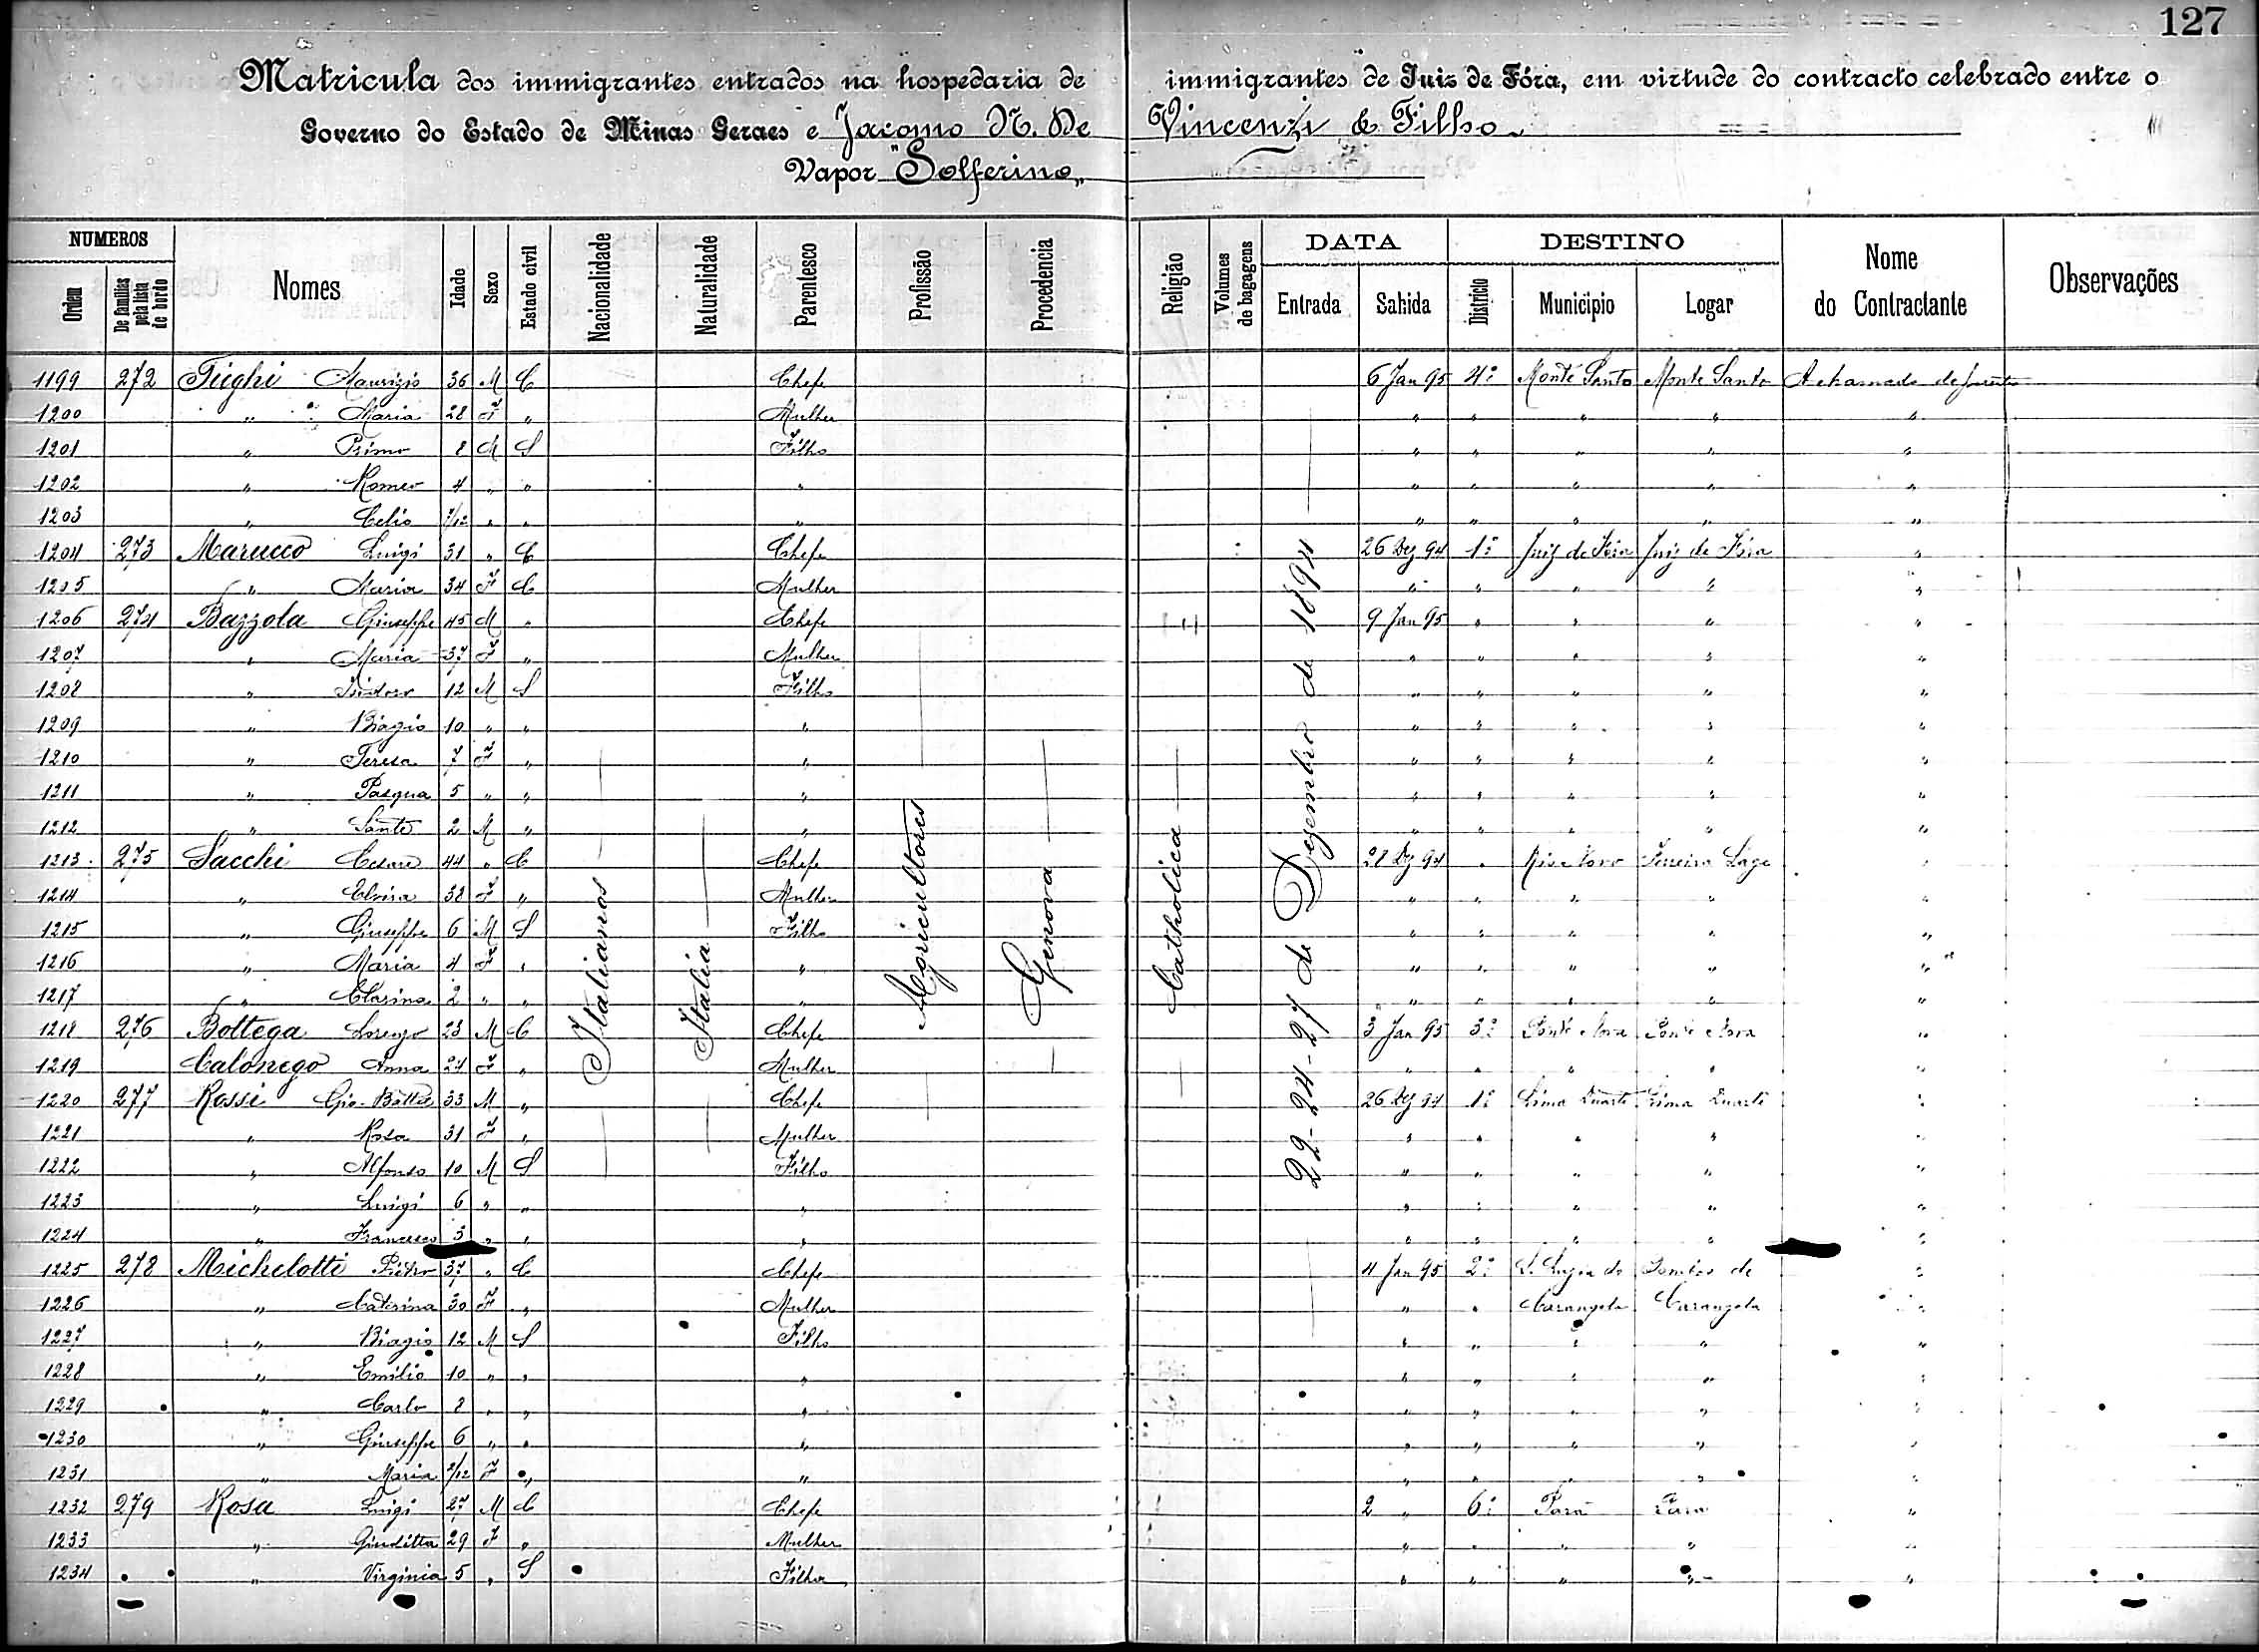 127
Matricula dos immigrantes entrados na hospedaria de immigrantes de Juiz de Fóra, em virtude do contracto celebrado entre o
Governo do Estado de Minas Geraes e Jacomo N. De Vincenzi & Filho
Vapor "Solferino"
NUMEROS DATA DESTINO
Ordem De familias pela lista de bordo Nomes Idade Sexo Estado civil Nacionalidade Naturalidade Parentesco Profissão Procedencia Religião Volumes de bagagens Entrada Sahida Districto Municipio Logar Nome do Contractante Observações
Italianos
Italia
Agricultores
Genova
Catholica
22-24-27 de Dezembro de 1894
1199 272 Maurizio 36 M C Chefe 6 Jan 95 4º Monte Santo Monte Santo A chamado de
1200 " Maria 28 F " Mulher " " " " "
1201 " Primo 8 M S Filho " " " " "
1202 " Romeo 4 " " " " " " " "
1203 " Celio /12 " " " " " " " "
1204 273 Marucco Luigi 31 " C Chefe 26 Dez 94 1º Juiz de Fóra Juiz de Fóra "
1205 " Maria 34 F C Mulher " " " " "
1206 274 Bazzola Giuseppe 45 M " Chefe 9 Jan 95 " " " "
1207 " Maria 37 F " Mulher " " " " "
1208 " Isidoro 12 M S Filho " " " " "
1209 " Biagio 10 " " " " " " " "
1210 " Teresa 7 F " " " " " " "
1211 " Pasqua 5 " " " " " " " "
1212 " Sante 2 M " " " " " " "
1213 275 Sacchi Cesare 44 " C Chefe Dez 94 " Rio Novo Ferreira Lage "
1214 " Elvira 38 F " Mulher " " " " "
1215 " Giuseppe 6 M S Filho " " " " "
1216 " Maria 4 F " " " " " " "
1217 " Clarina 2 " " " " " " " "
1218 276 Bottega Lorenzo 23 M C Chefe 3 Jan 95 3º Ponte Nova Ponte Nova "
1219 Calonego Anna 24 F " Mulher " " " " "
1220 277 Rossi Gio. Batta 33 M " Chefe 26 Dez 94 1º Lima Duarte Lima Duarte "
1221 " Rosa 31 F " Mulher " " " " "
1222 " Alfonso 10 M S Filho " " " " "
1223 " Luigi 6 " " " " " " " "
1224 " Francesco 3 " " " " " " " "
1225 278 Michelotti Pietro 37 " C Chefe 4 Jan 95 2º S. Luzia do Tombos de "
1226 " Caterina 30 F " Mulher " " Carangola Carangola "
1227 " Biagio 12 M S Filho " " " "
1228 " Emilio 10 " " " " " " " "
1229 " Carlo 8 " " " " " " " "
1230 " Giuseppe 6 " " " " " " " "
1231 " Maria /12 F " " " " " " "
1232 279 Rosa Luigi 27 M C Chefe 2 " 6º Pará Pará "
1233 " Giuditta 29 F " Mulher " " " " "
1234 " Virginia 5 " S Filha " " " " "